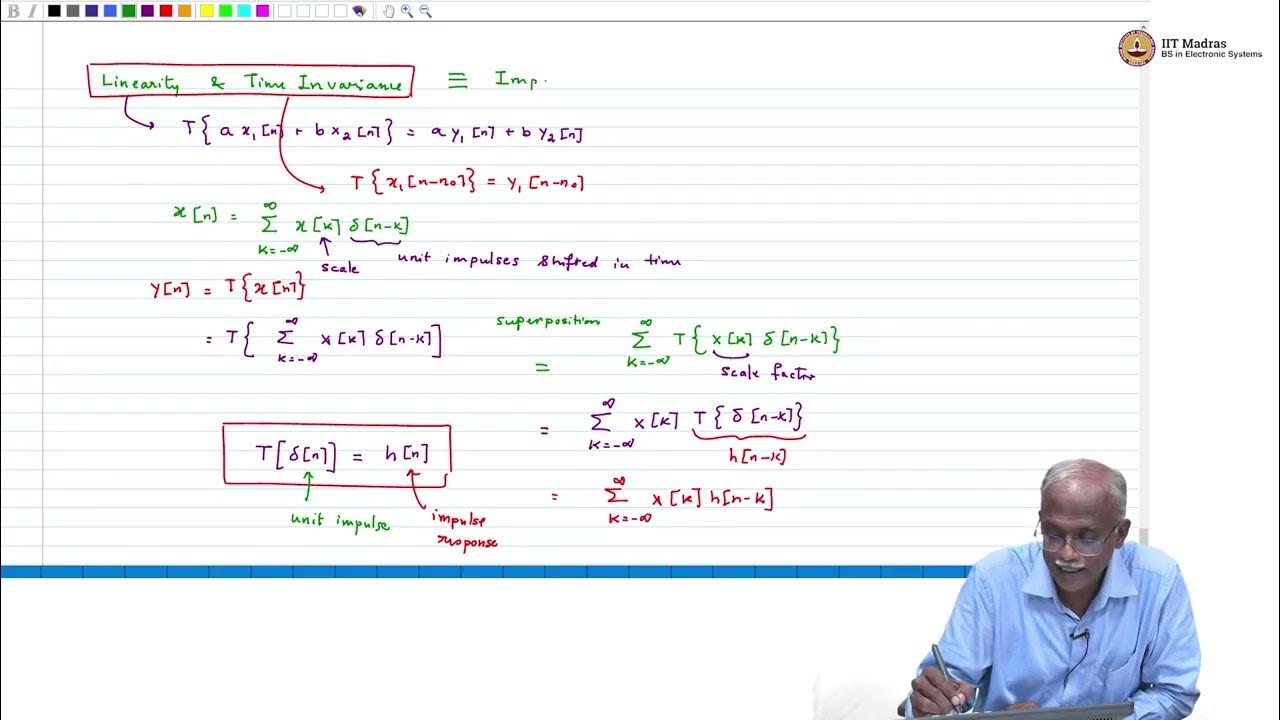 B I
IIT Madras
BS in Electronic Systems
Linearity & Time Invariance ≡ Imp.
T{ a x₁[n] + b x₂[n]} = a y₁[n] + b y₂[n]
T{x₁[n-n₀]} = y₁[n-n₀]
x[n] = ∞ Σ k=-∞ x[k] δ[n-k]
scale unit impulses shifted in time
y[n] = T{x[n]}
superposition
= T{ ∞ Σ k=-∞ x[k] δ[n-k]] = ∞ Σ k=-∞ T{ x[k] δ[n-k]}
scale factor
= ∞ Σ k=-∞ x[k] T{ δ[n-k]}
h[n-k]
T[δ[n]] = h[n]
= ∞ Σ k=-∞ x[k] h[n-k]
unit impulse impulse
response